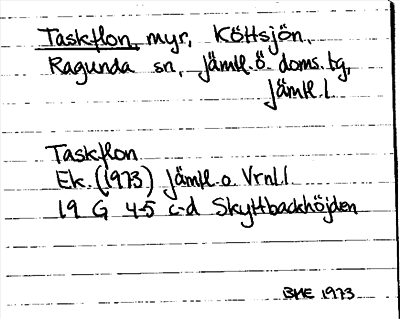 Taskflon, myr, Köttsjön,
Ragunda sn, Jämtl.ö. doms.tg,
Jämtl.l.
Taskflon
Ek. (1973) Jämtl.o. Vrnl.l
19 G 4-5 c-d Skyttbackhöjden
BHE 1973